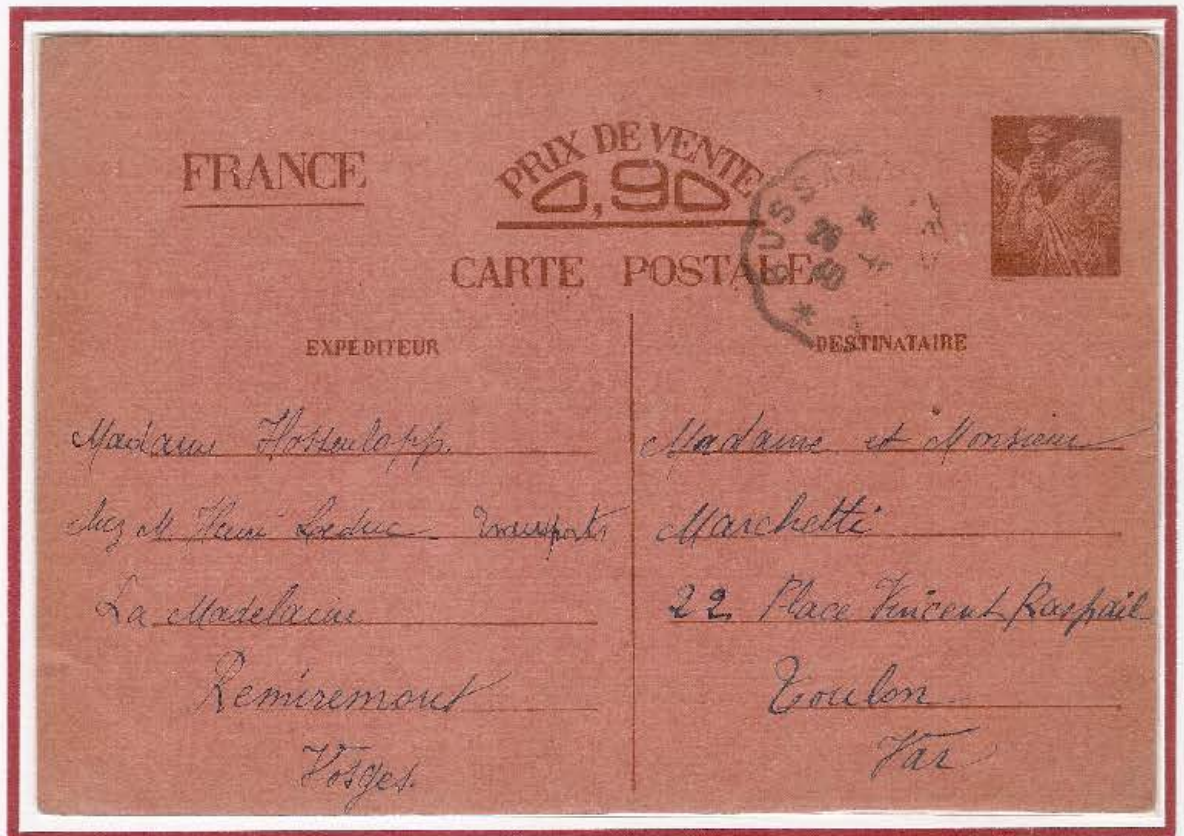 FRANCE
PRIX DE VENTE
0,90
CARTE POSTALE
BUSS
26
40
EXPÉDITEUR
Madame Hossenlopp.
chez M. Henri Leduc Transports
La Madelaine
Remiremont
Vosges.
DESTINATAIRE
Madame et Monsieur
Marchetti
22 Place Vincent Raspail
Toulon
Var